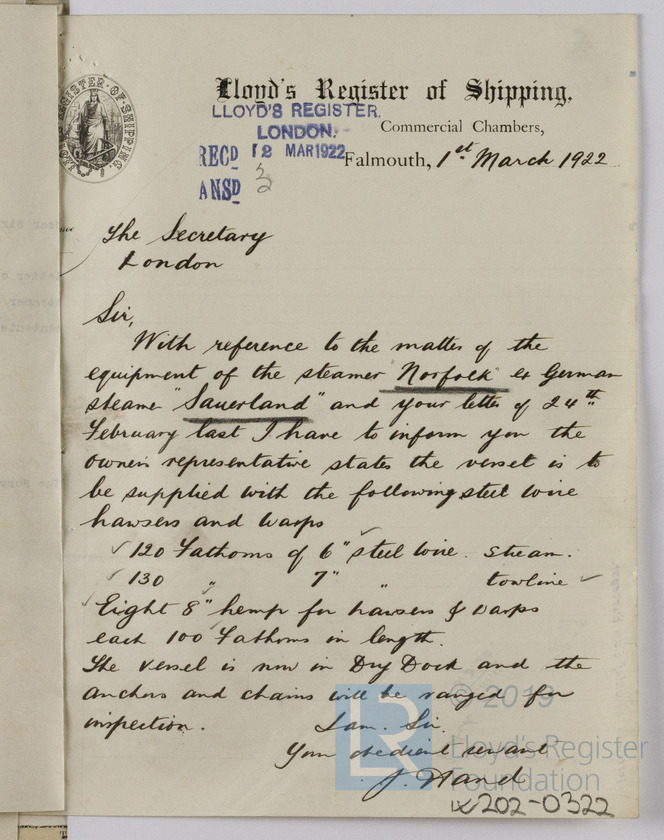 LLOYD'S REGISTER OF SHIPPING.
Lloyd's Register of Shipping.
LLOYD'S REGISTER.
LONDON.
Commercial Chambers,
RECD 2 MAR 1922
Falmouth, 1st March 1922
ANSD 3
The Secretary
London
Sir,
With reference to the matter of the
equipment of the steamer Norfolk ex German
steame "Sauerland" and your letter of 24th
February last I have to inform you the
owners representative states the vessel is to
be supplied with the following steel wire
hawsers and warps
120 Fathoms of 6" steel wire. stream.
130 " 7" " towline
Eight 8" hemp for hawsers & warps
each 100 Fathoms in length.
The vessel is now in Dry Dock and the
anchors and chains will be ranged for
inspection.
I am. Sir.
Your obedient servant
J. Wand
© 2019
LR
Lloyd's Register
Foundation
202-0322